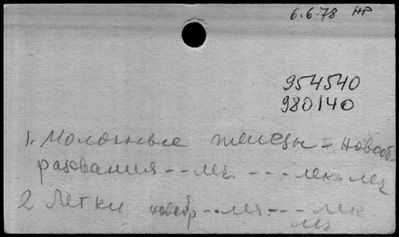 6.6.78 НР
954540
980140
1. Молочные железы - новооб-
разования -- леч. --- лек. леч
2 Легкие новобр -- леч --- лек
леч